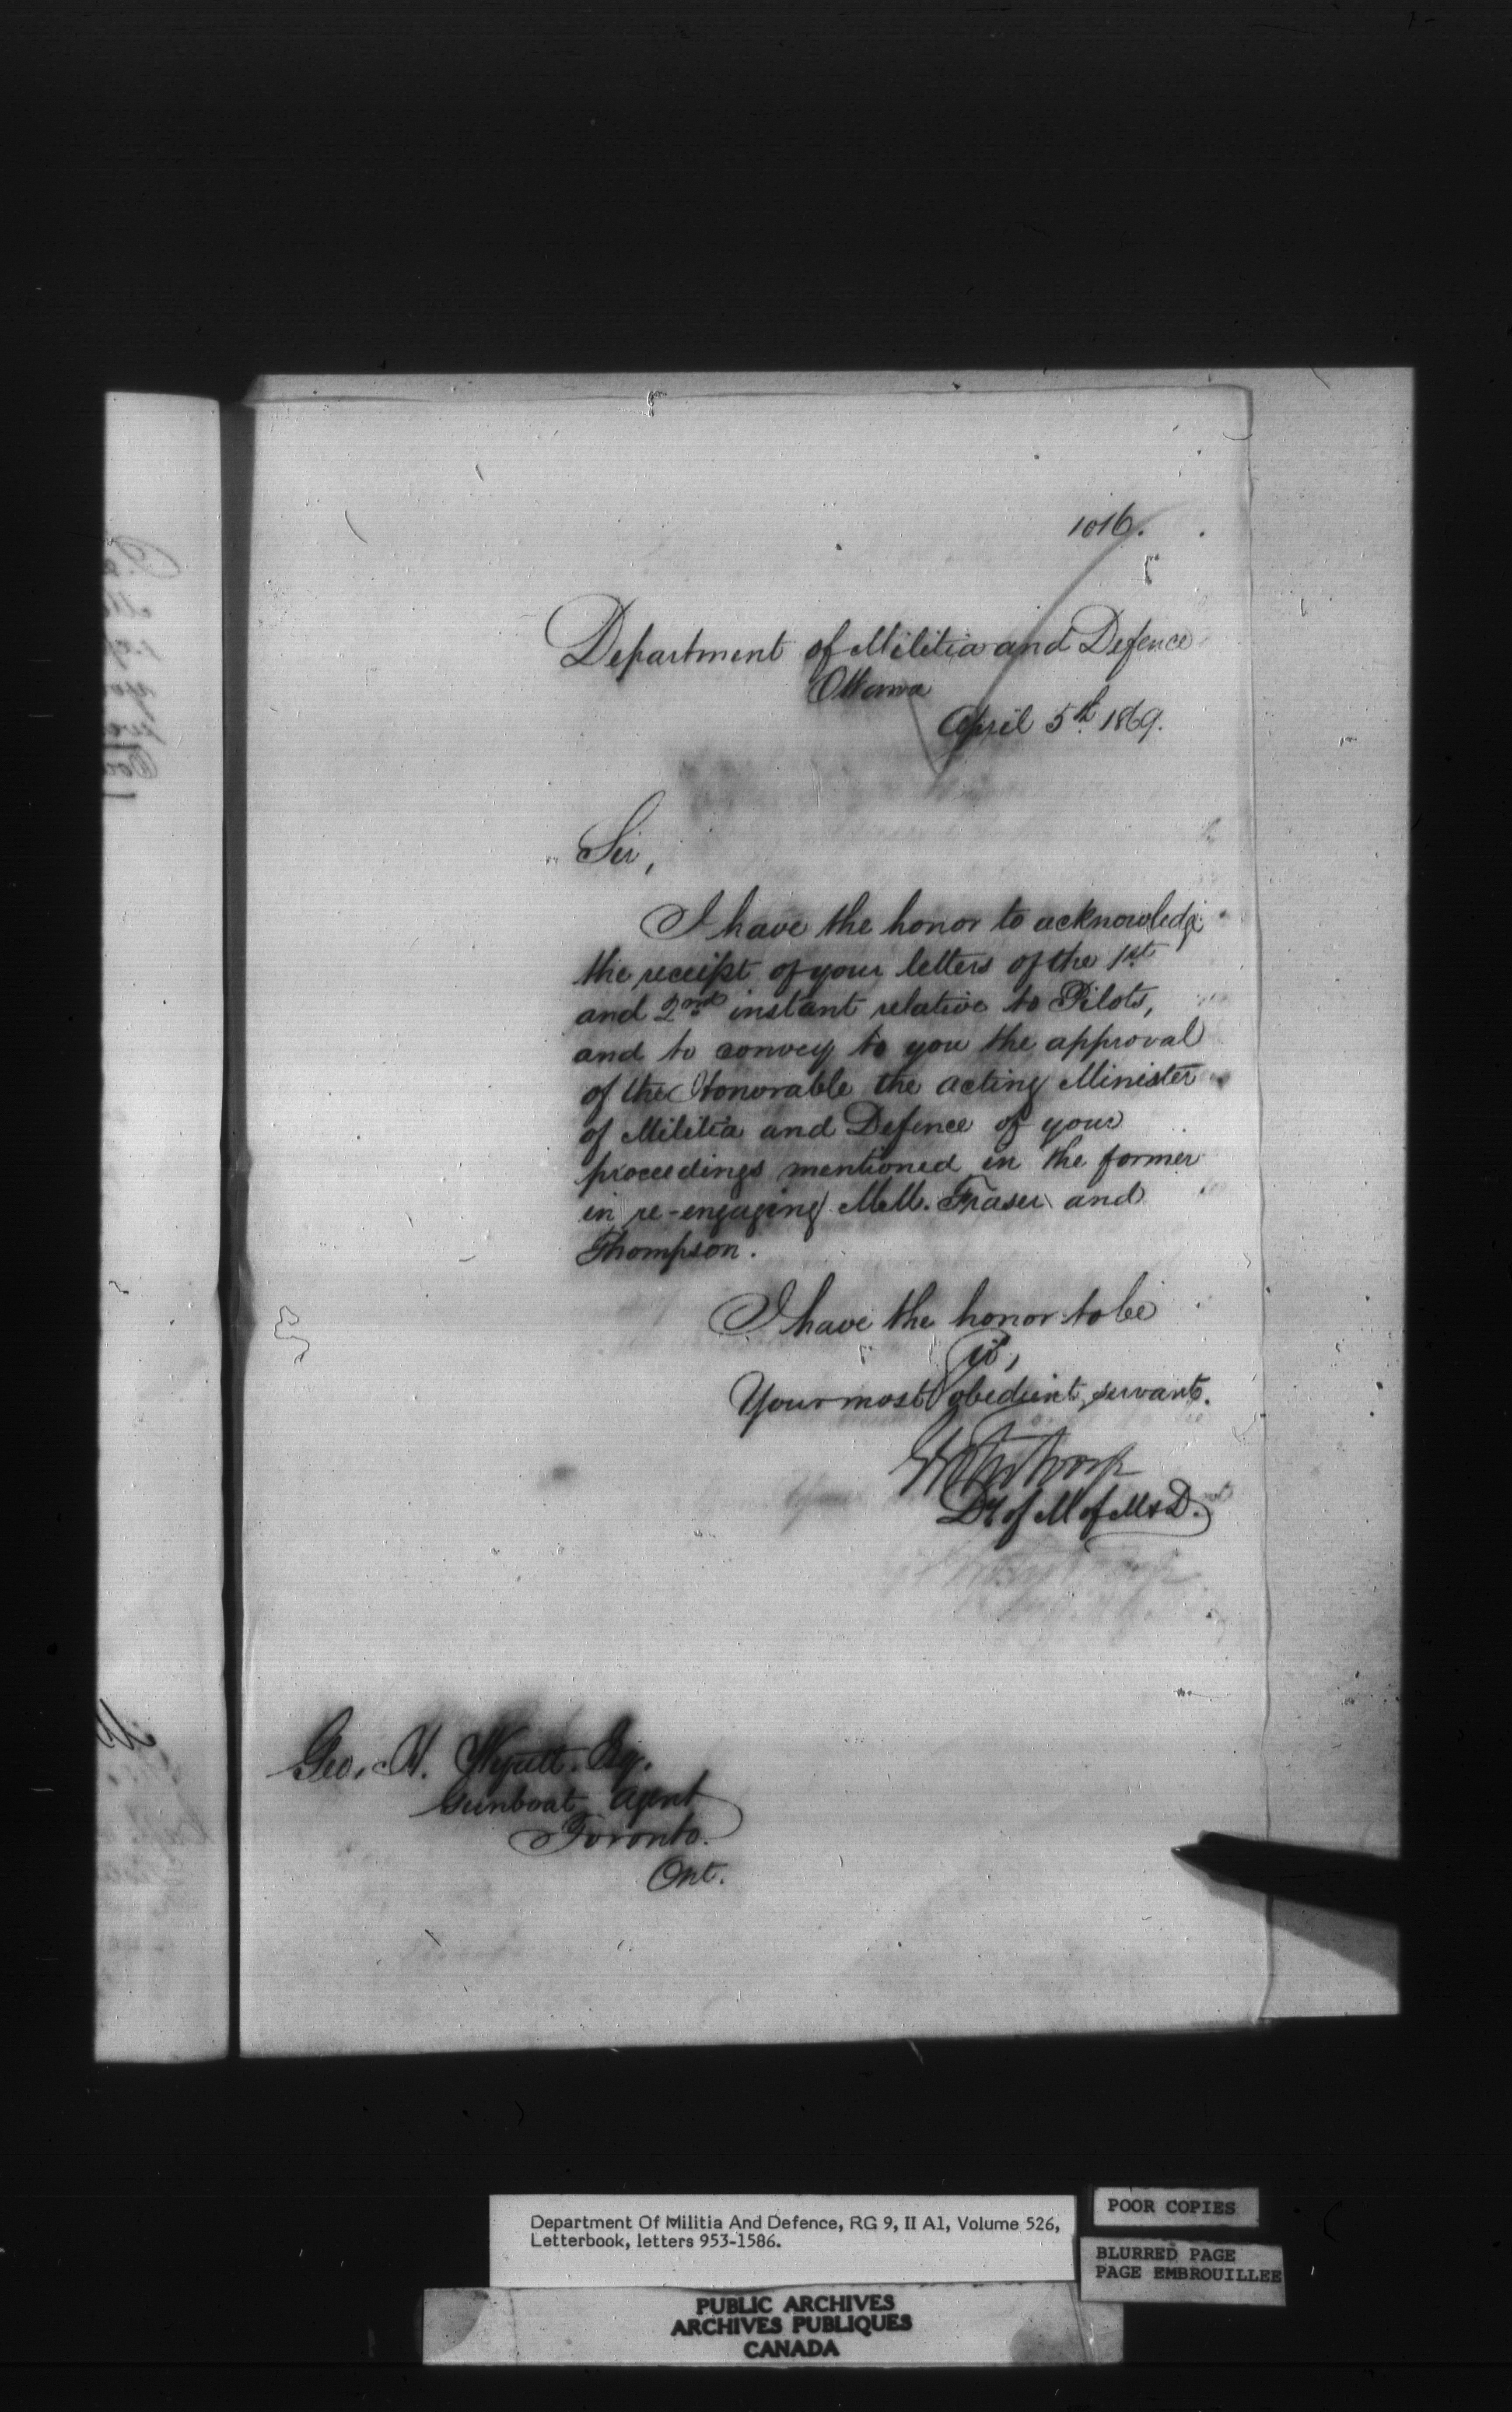 1016.
Department of Militia and Defence
Ottawa
April 5th 1869.
Sir,
I have the honor to acknowledge
the receipt of your letters of the 1st
and 2nd instant relative to Pilots,
and to convey to you the approval
of the Honorable the acting Minister
of Militia and Defence of your
proceedings mentioned in the former
in re-engaging MM. Fraser and
Thompson.
I have the honor to be
Sir,
Your most obedient servant.
of M of M & D.
Geo. H. Wyatt. Esq.
Gunboat Agent
Toronto.
Ont.
Department Of Militia And Defence, RG 9, II A1, Volume 526,
Letterbook, letters 953-1586.
POOR COPIES
BLURRED PAGE
PAGE EMBROUILLEE
PUBLIC ARCHIVES
ARCHIVES PUBLIQUES
CANADA